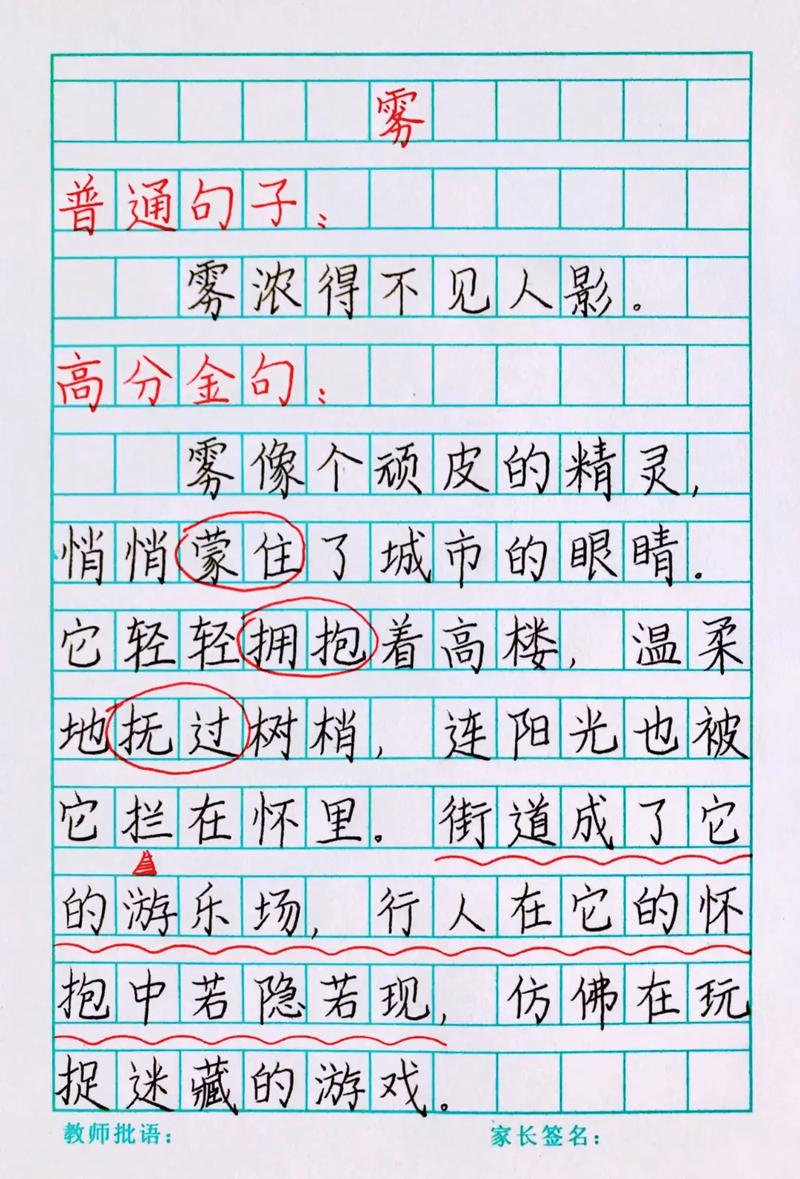 雾
普通句子：
雾浓得不见人影。
高分金句：
雾像个顽皮的精灵，
悄悄蒙住了城市的眼睛。
它轻轻拥抱着高楼，温柔
地抚过树梢，连阳光也被
它拦在怀里。街道成了它
的游乐场，行人在它的怀
抱中若隐若现，仿佛在玩
捉迷藏的游戏。
教师批语： 家长签名：